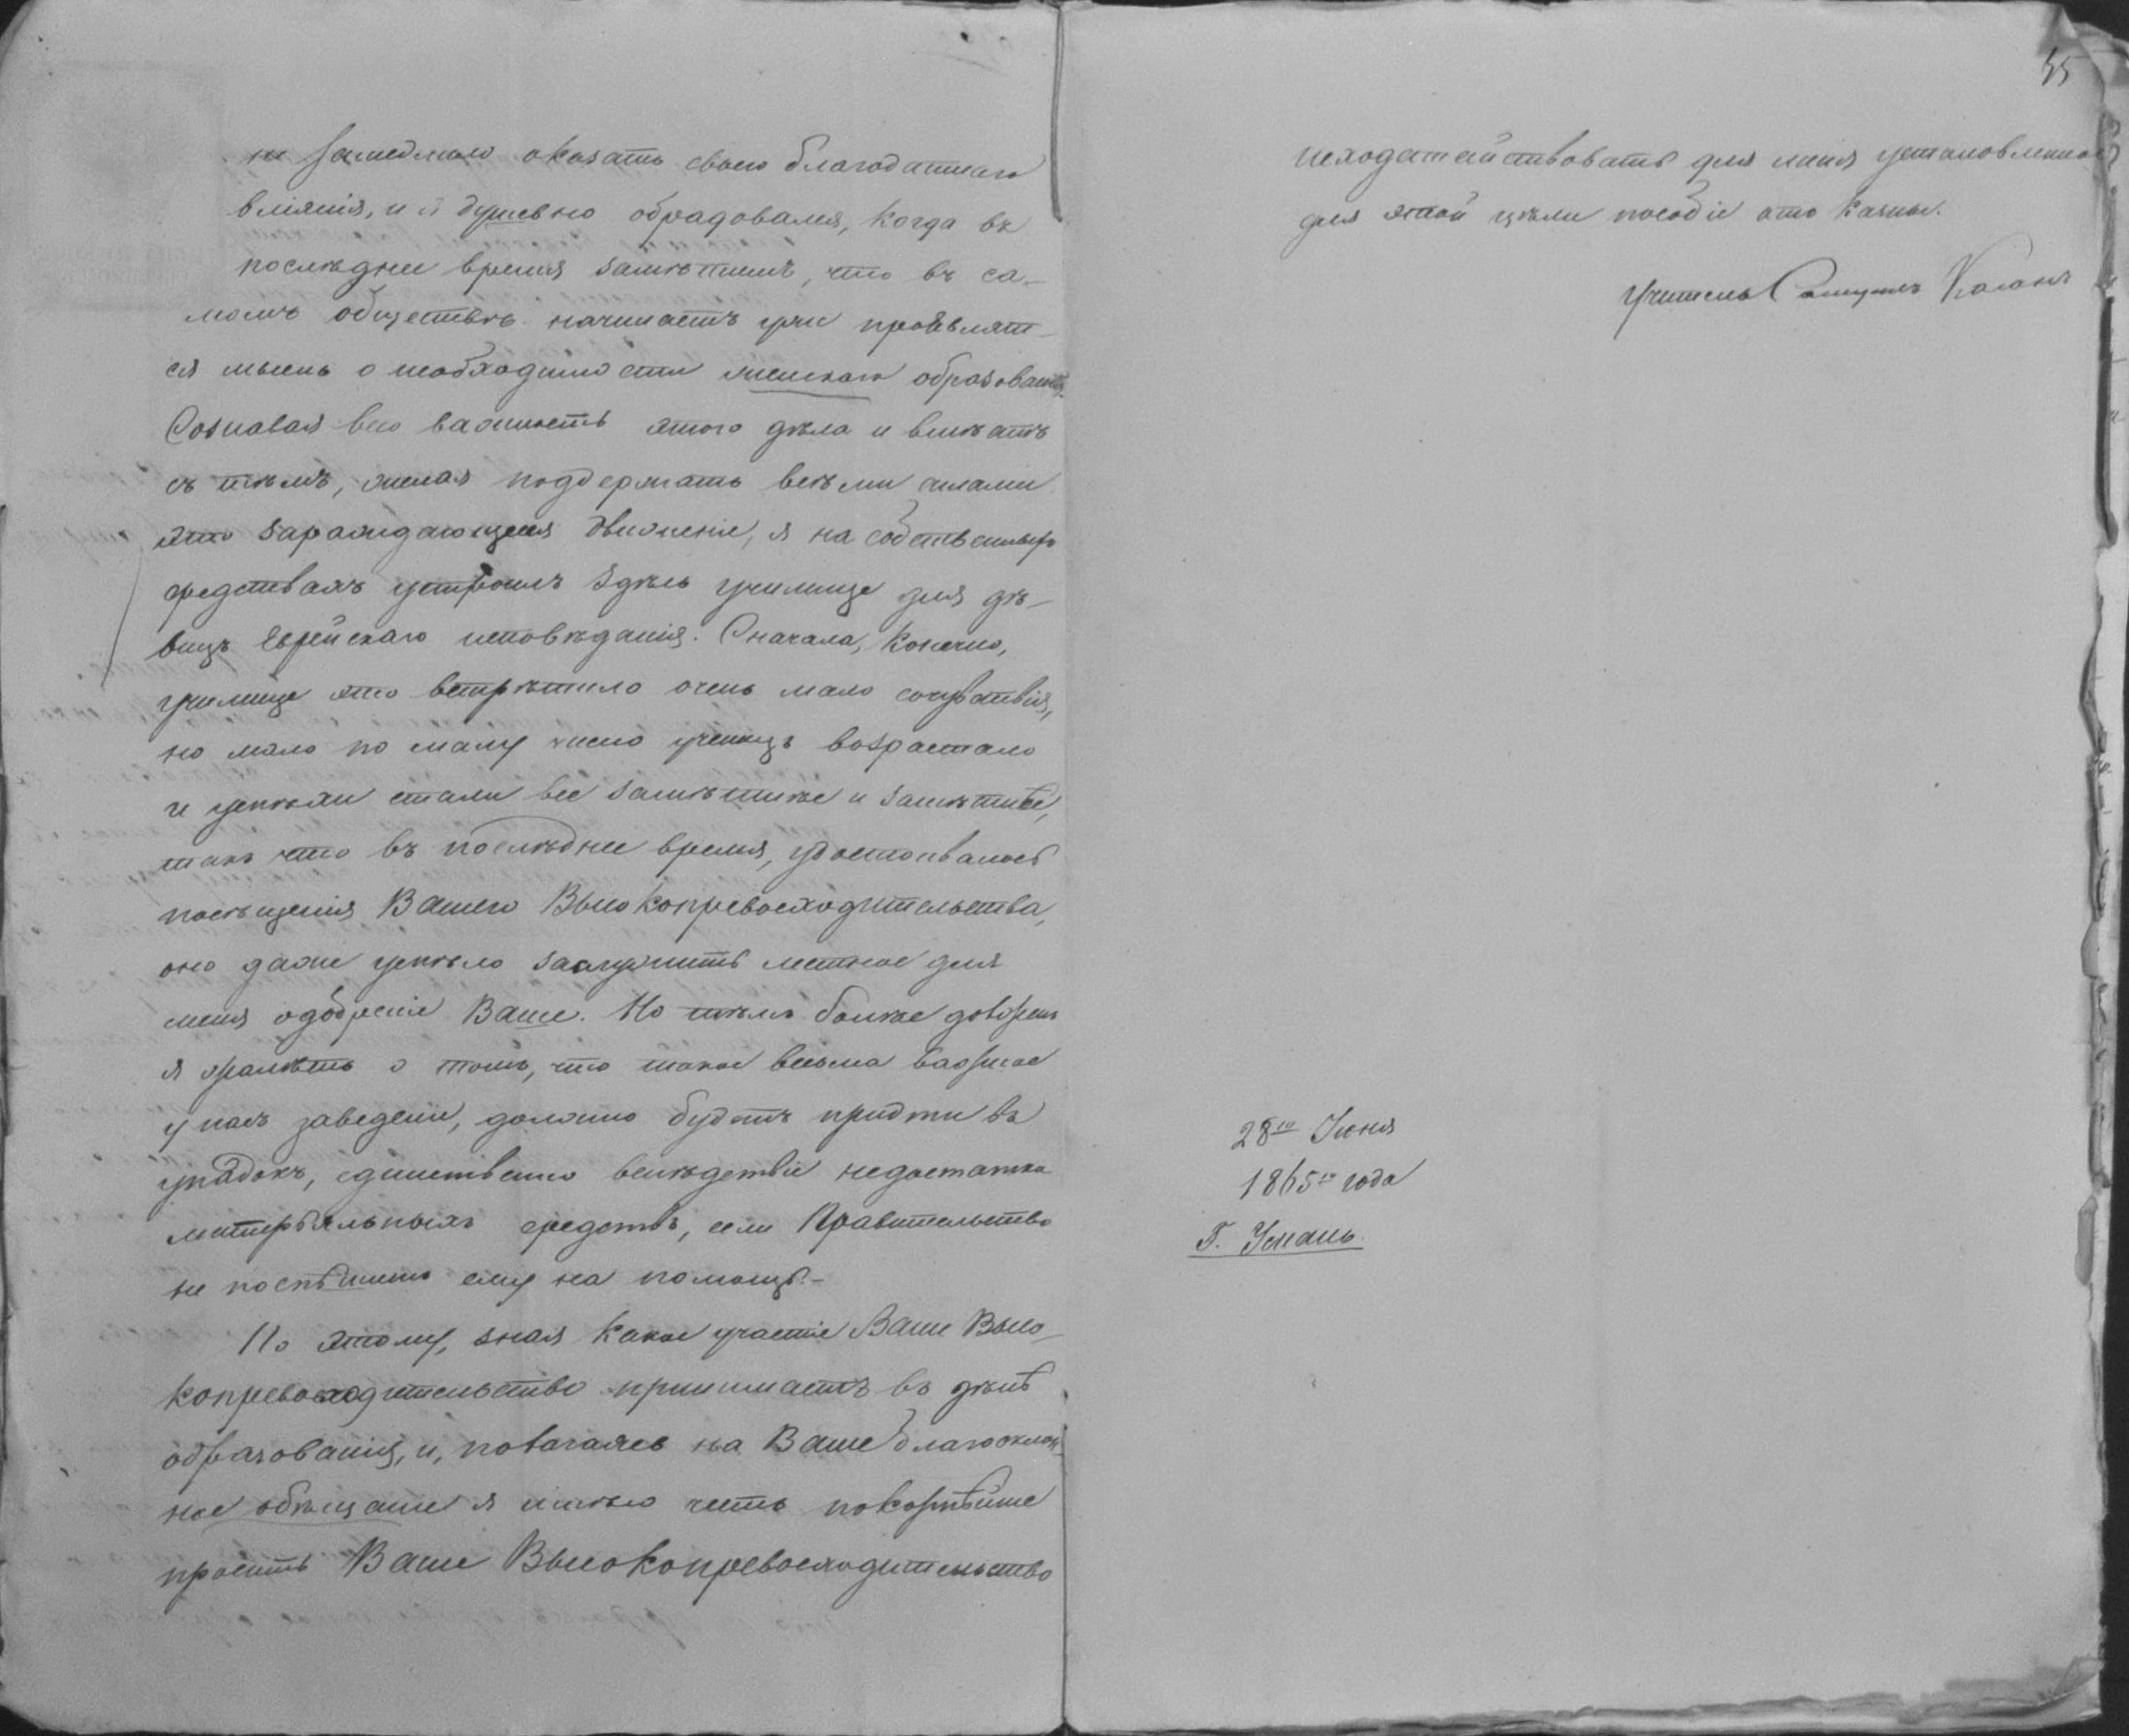 не замедлило оказать своего благодатнаго
вліянія, и я душевно обрадовался, когда въ
послѣднее время замѣтилъ, что въ са-
момъ обществѣ начинаетъ уже проявлят-
ся мысль о необходимости женскаго образованія.
Сознавая всю важность этого дѣла и вмѣстѣ
съ тѣмъ, желая поддержать всѣми силами
это зараждающееся движеніе, я на собственныхъ
средствахъ устроилъ здѣсь училище для дѣ-
вицъ Еврейскаго исповѣданія. Сначала, конечно,
училище это встрѣтило очень мало сочувствія,
но мало по малу число ученицъ возрастало
и успѣхи стали все замѣтнѣе и замѣтнѣе,
такъ что въ послѣднее время, удостоивалось
посѣщенія Вашего Высокопревосходительства,
оно даже успѣло заслужить лестное для
меня одобреніе Ваше. Но тѣмъ болѣе долженъ
я жалѣть о томъ, что такое весьма важное
у насъ заведеніе, должно будетъ придти въ
упадокъ, единственно вслѣдствіе недостатка
матерьяльныхъ средствъ, если Правительство
не поспѣшитъ ему на помощь.-
По этому, зная какое участіе Ваше Высо-
копревосходительство принимаетъ въ дѣлѣ
образованія, и, полагаясь на Ваше благосклон-
ное обѣщаніе я имѣю честь покорнѣйше
просить Ваше Высокопревосходительство
55
исходатайствовать для меня установленное
для этой цѣли пособіе отъ казны.
Учитель Самуилъ Каганъ
28го Іюня
1865го года
Г. Умань.